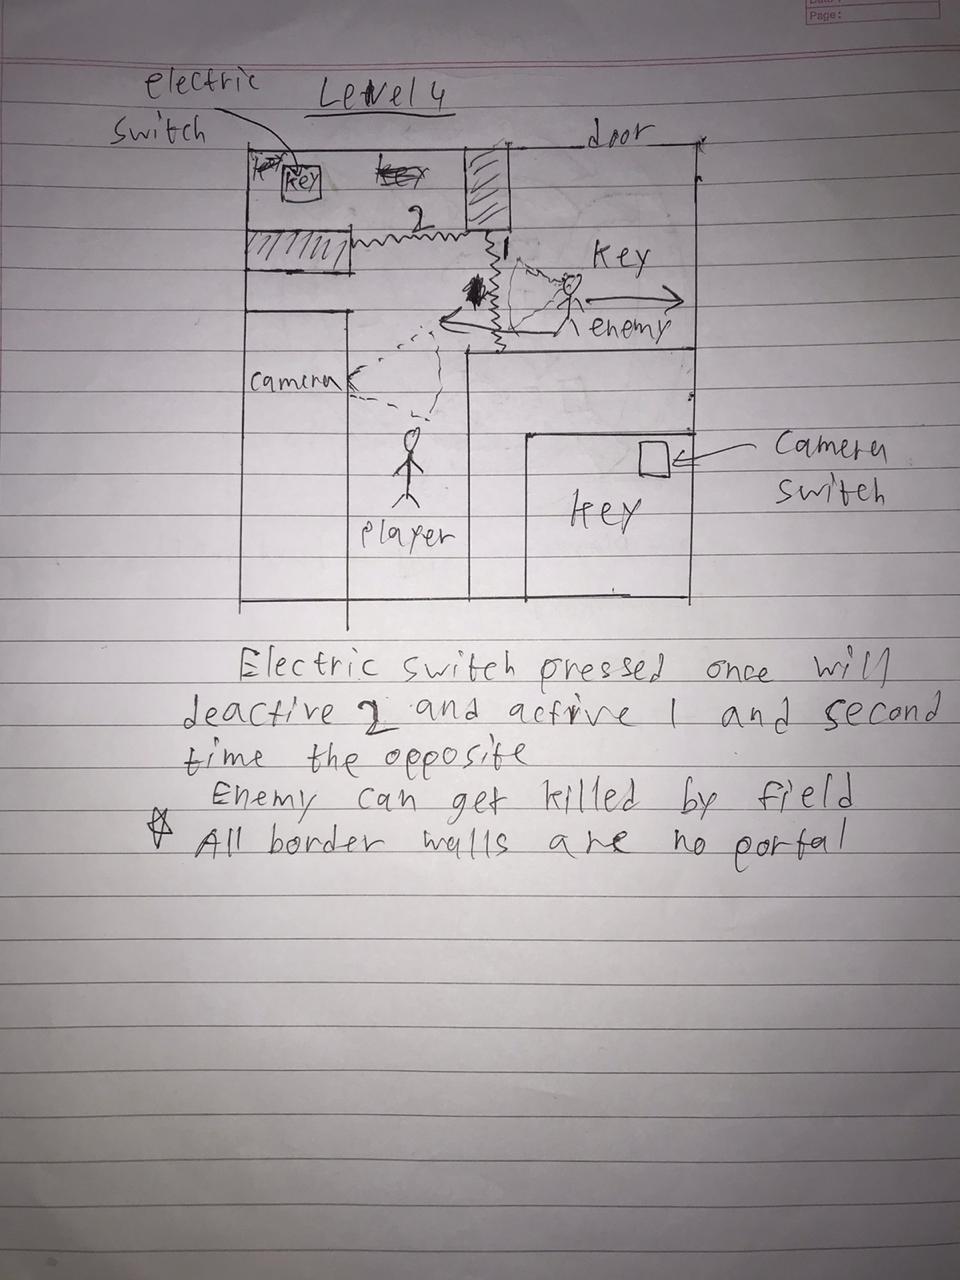 Page:
Level 4
electric
switch
door
key
key
key
2
1
key
enemy
camera
camera
switch
key
player
Electric switch pressed once will
deactive 2 and active 1 and second
time the opposite
Enemy can get killed by field
☆ All border walls are no portal